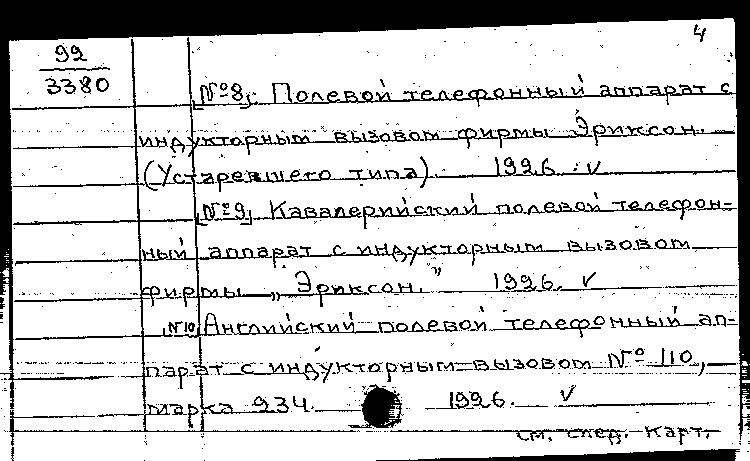 4
92
3380
№8, Полевой телефонный аппарат с
индукторным вызовом фирмы Эриксон.
(Устаревшего типа). 1926. v
№9, Кавалерийский полевой телефон-
ный аппарат с индукторным вызовом
фирмы „Эриксон.” 1926. v
№10, Английский полевой телефонный ап-
парат с индукторным вызовом № 110,
марка 234. 1926. v
см. след. карт.